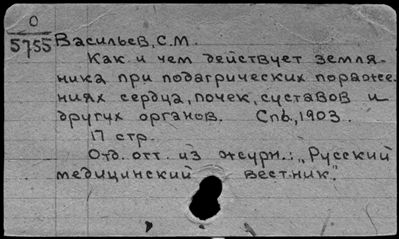 О
5755
Васильев, С.М.
Как и чем действует земля-
ника при подагрических пораже-
ниях сердца, почек, суставов и
других органов. Спб., 1903.
17 стр.
Отд. отт. из журн.: „Русский
медицинский вестник."